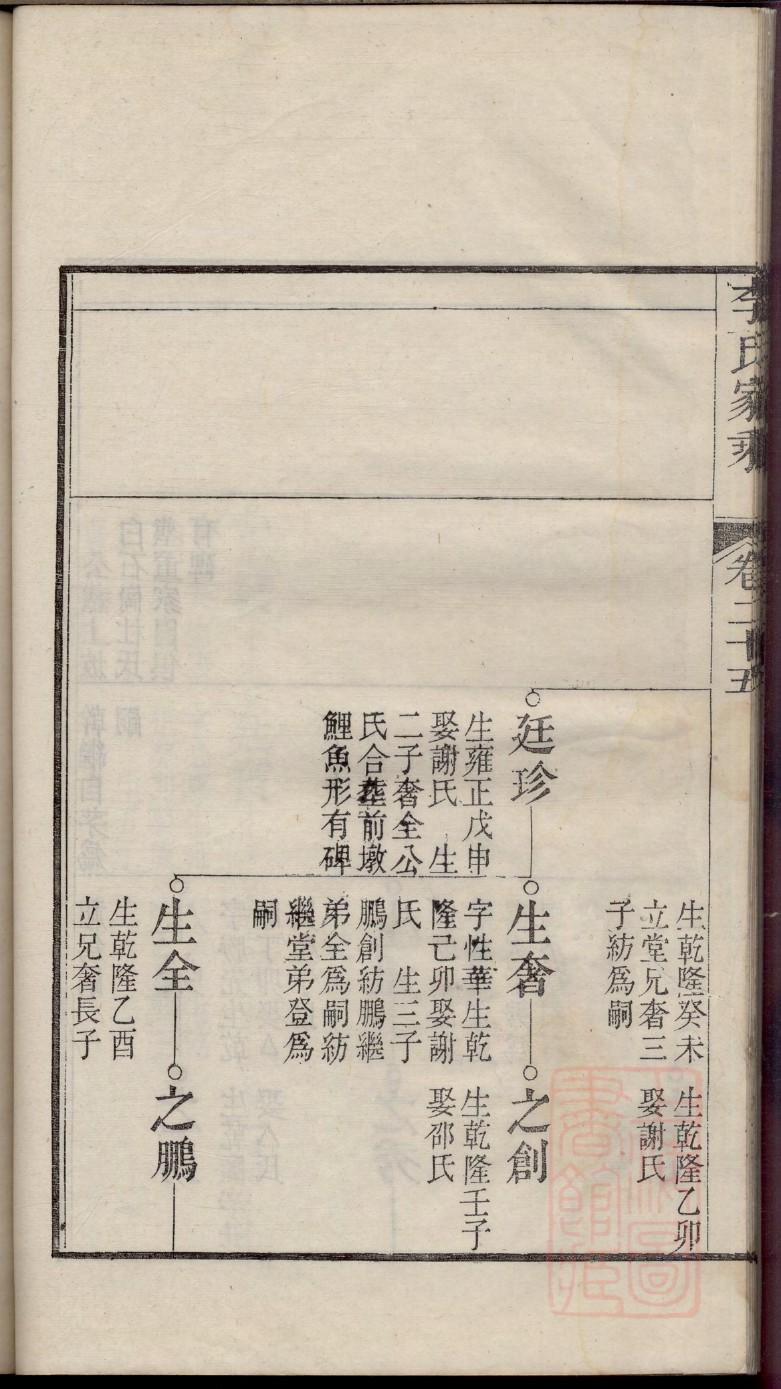 李氏家乘
卷二十五
生乾隆癸未
立堂兄奢三
子紡爲嗣
生乾隆乙卯
娶謝氏
廷珍
生雍正戊申
娶謝氏 生
二子奢全公
氏合塟前墩
鯉魚形有碑
生奢
字性華生乾
隆己卯娶謝
氏 生三子
鵬創紡鵬繼
弟全爲嗣紡
繼堂弟登爲
嗣
之創
生乾隆壬子
娶邵氏
生全
生乾隆乙酉
立兄奢長子
之鵬